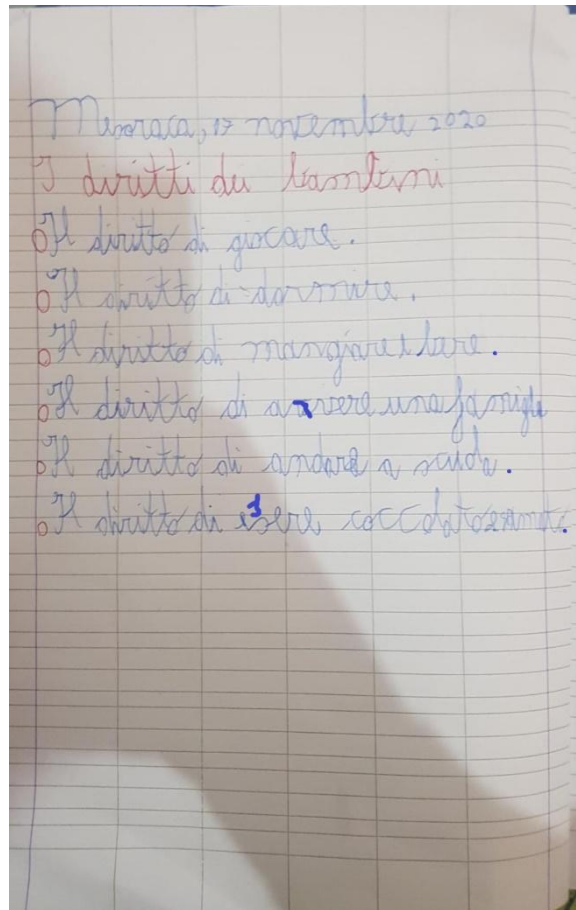 Mesoraca, 17 novembre 2020
I diritti dei bambini
Il diritto di giocare.
Il diritto di dormire.
Il diritto di mangiare e bere.
Il diritto di avere una famiglia
Il diritto di andare a scuola.
Il diritto di essere coccolato e amato.